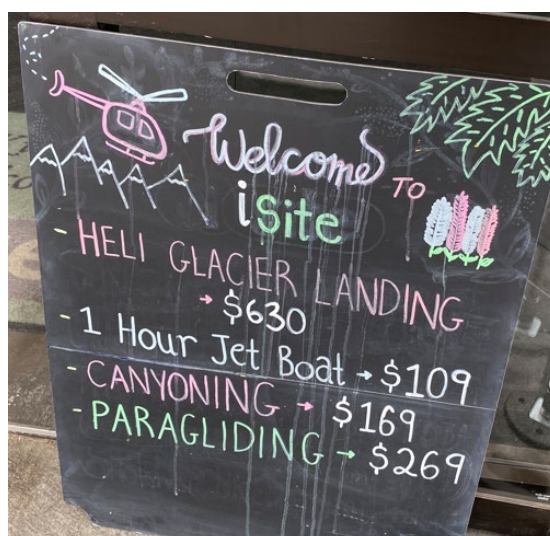 Welcome TO
iSite
- HELI GLACIER LANDING
→ $630
- 1 Hour Jet Boat → $109
- CANYONING → $169
- PARAGLIDING → $269